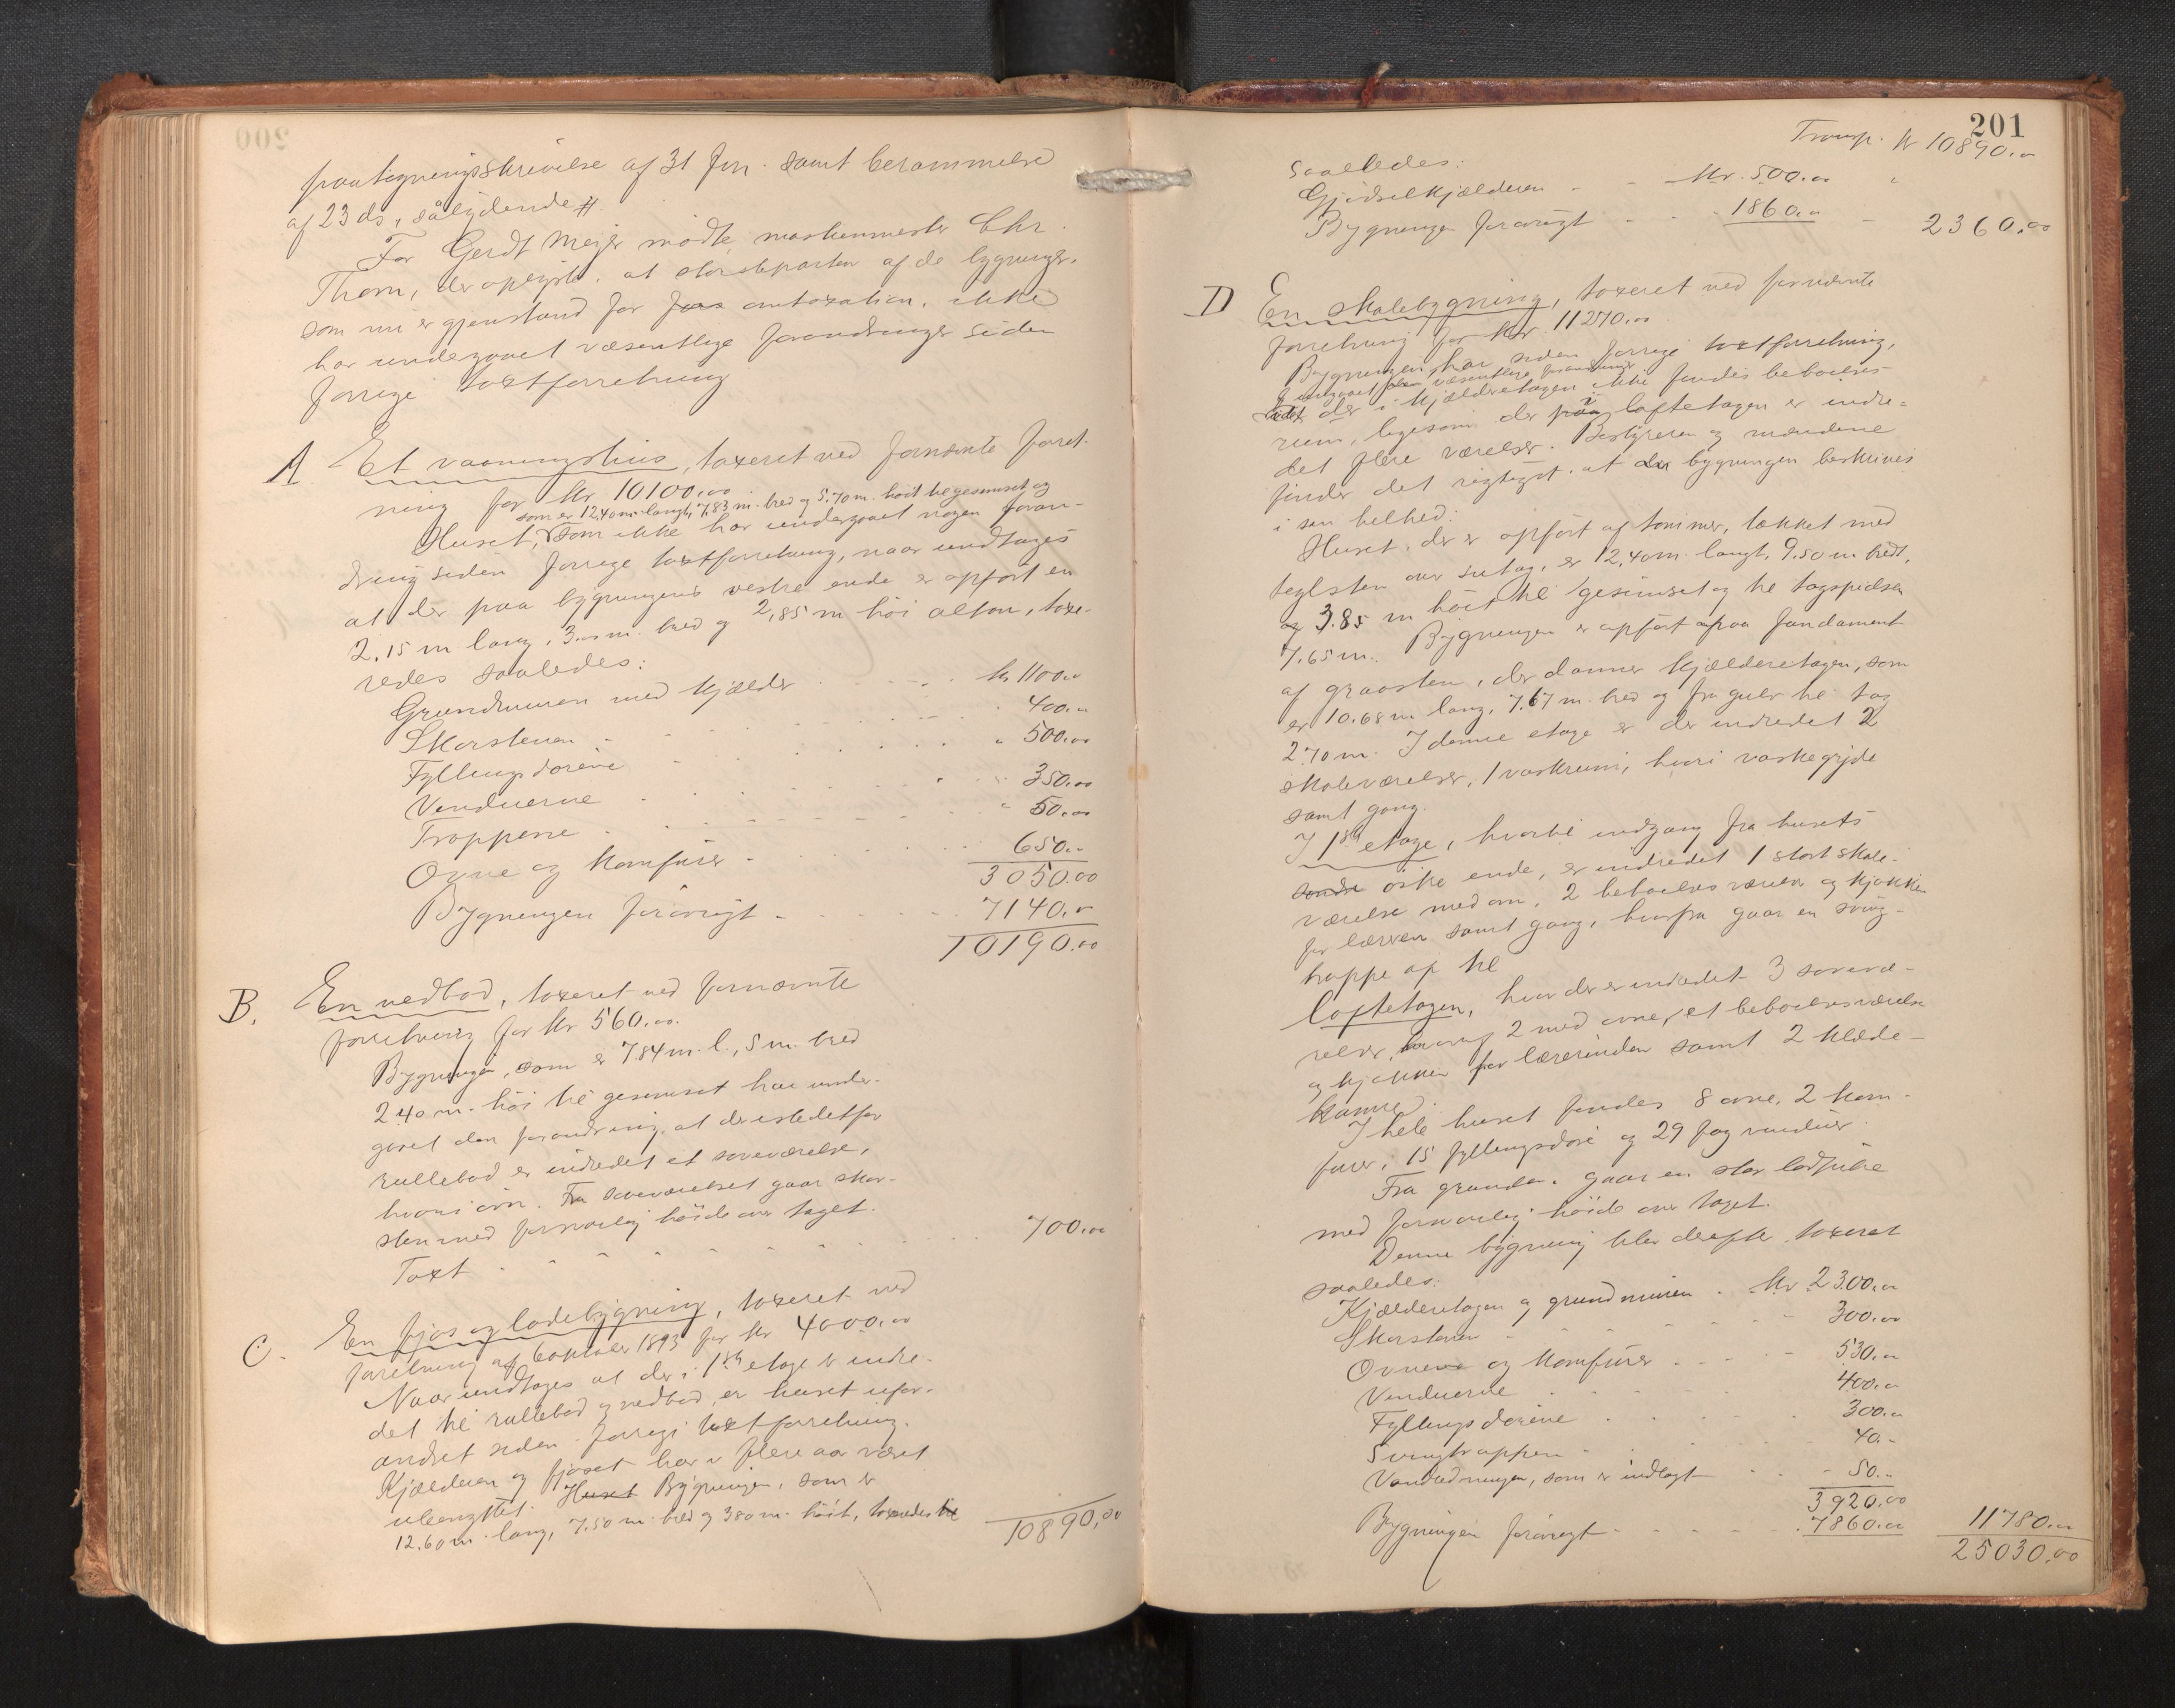 paategningsskrivelse af 31 jan. samt berammelse
af 23 ds., sålydende #
For Gerdt Meyer mødte maskinmester Chr.
Thom, der oplyste, at størsteparten af de bygninger,
som nu er gjenstand for fors omtaxation, ikke
har undergaaet væsentlige forandringer siden
forrige taxtforretning
A Et vaaningshus, taxeret ved fornævnte forret-
ning for Kr. 10100.00
som er 12,40 m. langt, 7,83 m. bred og 5.70 m. høit til gesimset og
Huset, som ikke har undergaaet nogen foran-
dring siden forrige taxtforretning, naar undtages
at der paa bygningens vestre ende er opført en
2.15 m lang, 3.00 m. bred og 2,85 m høi altan, taxe-
redes saaledes:
Grundmuren med kjælder kr 1100.00
Skorstenen 400.00
Fyllingsdørene " 500.00
Vinduerne 350.00
Trapperne " 50.00
Ovne og komfurer 650.00
3050.00
Bygningen forøvrigt 7140.00
10190.00
B. En vedbod, taxeret ved fornævnte
forretning for kr 560.00.
Bygningen, som er 7.84 m. l., 5 m. bred
2.40 m. høi til gesimset har under-
gaaet den forandring, at der istedetfor
rullebod er indredet et soveværelse,
hvori ovn. Fra soveværelset gaar skor-
sten med forsvarlig høide over taget.
Taxt 700.00
C. En fjøs og ladebygning, taxeret ved
forretning af 6 oktober 1893 for kr 4000.00
Naar undtages at der i 1ste etage er indre-
det til rullebod og vedbod, er huset ufor-
andret siden forrige taxtforretning.
Kjælderen og fjøset har i flere aar været
ubenyttet. Huset Bygningen, som er
12.60 m. lang, 7.50 m. bred og 3.80 m. høit, taxeredes til
10890,00
201
Transp. kr 10890.00
saaledes:
Gjødselkjælderen Kr. 500.00
Bygningen forøvrigt 1860.00
2360.00
D En skolebygning, taxeret ved fornævnte
forretning for kr. 11270.00
Bygningen har siden forrige taxtforretning,
undgaaet væsentlige forandringer
idet der i kjælderetagen ikke findes beboelses-
rum, ligesom der paa i loftetagen er indre-
det flere værelser. Bestyreren og mændene
finder det rigtigst at bygningen beskrives
i sin helhed:
Huset, der er opført af tømmer, tækket med
teglsten over sutag, er 12,40 m. langt, 9.50 m. bredt,
og 3.85 m høit til gesimset og til tagspidsen
7.65 m. Bygningen er opført paa fundament
af graasten, der danner kjælderetagen, som
er 10.68 m. lang, 7.67 m. bred og fra gulv til tag
2.70 m. I denne etage er der indredet 2
skoleværelser, 1 vaskerum, hvori vaskegryde
samt gang.
I 1ste etage, hvortil indgang fra husets
søndre østre ende, er indredet 1 stort skole-
værelse med ovn, 2 beboelsesværelser og kjøkken
for læreren samt gang, hvorfra gaar en sving-
trappe op til
loftetagen, hvor der er indredet 3 sovevæ-
relser, hvoraf 2 med ovne, et beboelsesværelse
og kjøkken for lærerinden samt 2 klæde-
kamre.
I hele huset findes 8 ovne, 2 kom-
furer, 15 fyllingsdøre og 29 fag vinduer.
Fra grunden gaar en stor ladpibe
med forsvarlig høide over taget.
Denne bygning blev derefter taxeret
saaledes:
Kjælderetagen og grundmuren Kr 2300.00
Skorstenen 300.00
Ovnene og komfurer 530.00
Vinduerne 400.00
Fyllingsdørene 300.00
Svingtrappen 40.-
Vandledningen, som er indlagt 50.-
3920.00
Bygningen forøvrigt 7860.00 11780.00
25030.00